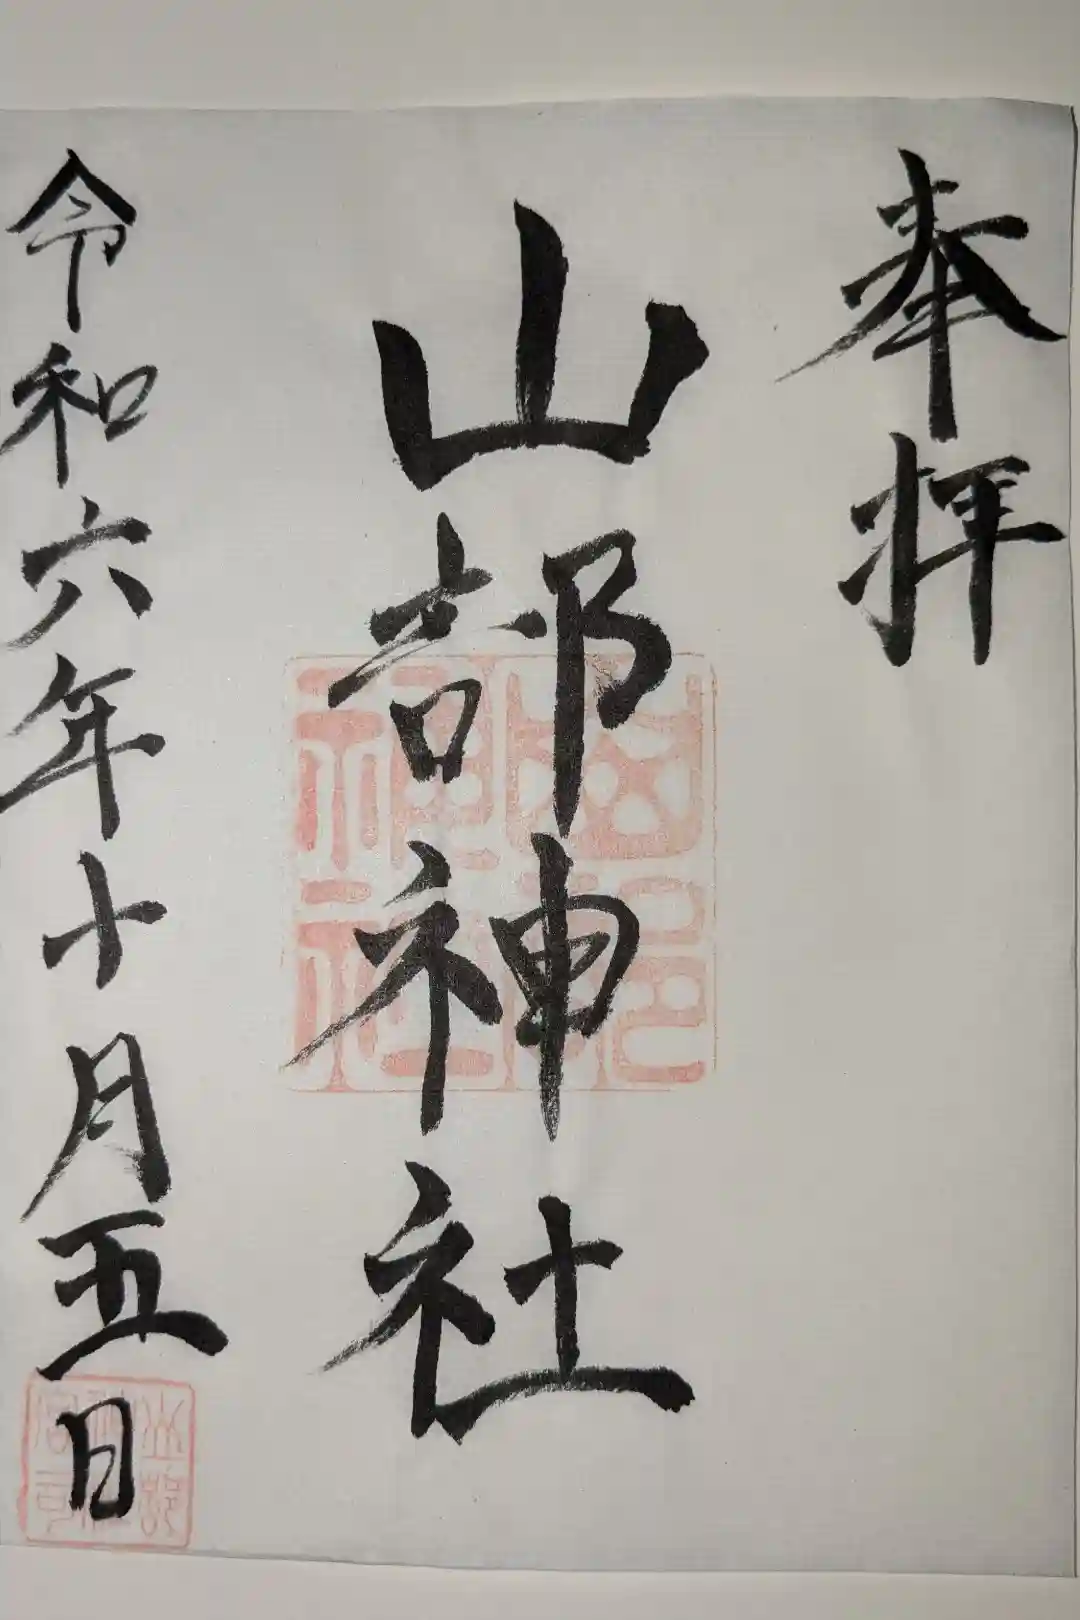 奉拝
山部神社
令和六年十月五日